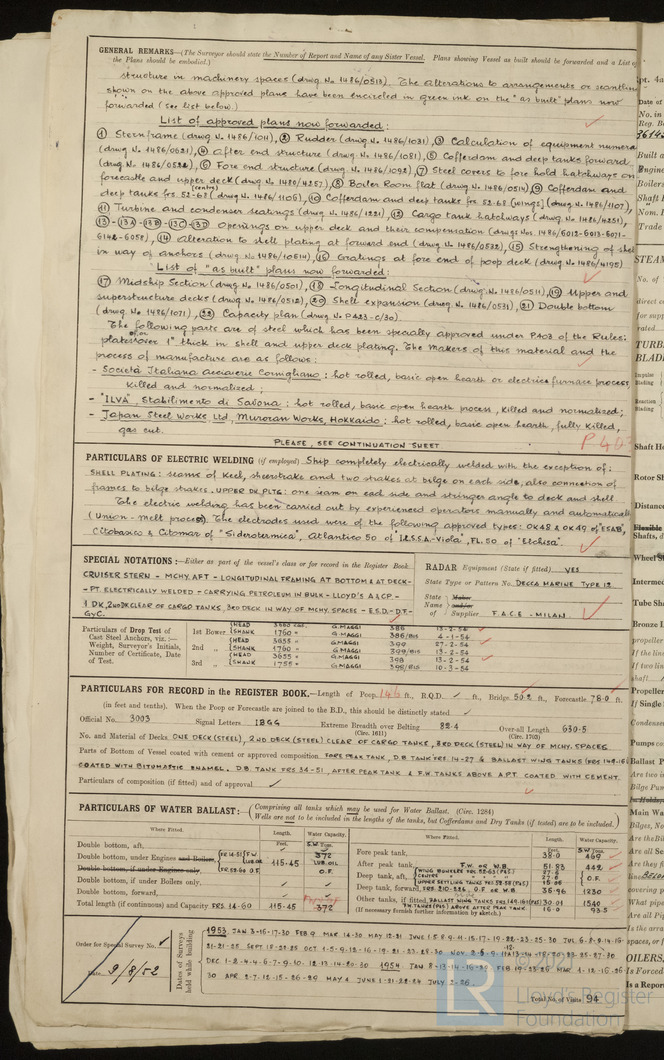 GENERAL REMARKS—(The Surveyor should state the Number of Report and Name of any Sister Vessel. Plans showing Vessel as built should be forwarded and a List of
the Plans should be embodied.)
structure in machinery spaces (drwg. No 1486/0513). The alterations to arrangements or scantlin
shown on the above approved plans have been encircled in green ink on the "as built" plans now
forwarded (see list below.)
List of approved plans now forwarded:
① Sternframe (drwg No 1486/1011), ② Rudder (drwg No 1486/1031), ③ Calculation of equipment numeral
(drwg No 1486/0621), ④ After end structure (drwg No 1486/1081), ⑤ Cofferdam and deep tanks forward
(drwg No 1486/0522), ⑥ Fore end structure (drwg No 1486/1092), ⑦ Steel covers to fore hold hatchways on
forecastle and upper deck (drwg No 1486/4257), ⑧ Boiler Room flat (drwg No 1486/0514) ⑨ Cofferdam and
deep tanks frs. 52-68 (centre) (drwg No 1486/1106), ⑩ Cofferdam and deep tanks frs 52-68 [wings] (drwg No 1486/1107),
⑪ Turbine and condenser seatings (drwg No 1486/1221), ⑫ Cargo tank hatchways (drwg No 1486/4251),
⑬-13A-13B-13C-13D Openings on upper deck and their compensation (drwgs Nos 1486/6012-6013-6071-
6142-6058), ⑭ Alteration to shell plating at forward end (drwg No 1486/0532), ⑮ Strengthening of shell
in way of anchors (drwg No 1486/10614), ⑯ Gratings at fore end of poop deck (drwg No 1486/4195)
List of "as built" plans now forwarded:
⑰ Midship Section (drwg No 1486/0501), ⑱ Longitudinal Section (drwg No 1486/0511), ⑲ Upper and
superstructure decks (drwg No 1486/0512), ⑳ Shell expansion (drwg No 1486/0531), ㉑ Double bottom
(drwg No 1486/1071), ㉒ Capacity plan (drwg No PA23-C/30).
The following parts are of steel which has been specially approved under P403 of the Rules:
plates over 1" thick in shell and upper deck plating. The Makers of this material and the
process of manufacture are as follows:
- Società Italiana Acciaierie Cornigliano: hot rolled, basic open hearth or electric furnace process
killed and normalized;
- "ILVA", Stabilimento di Savona: hot rolled, basic open hearth process, killed and normalized;
- Japan Steel Works Ltd, Muroran Works, Hokkaido: hot rolled, basic open hearth, fully killed,
gas cut.
PLEASE, SEE CONTINUATION SHEET
P 403
PARTICULARS OF ELECTRIC WELDING (if employed) Ship completely electrically welded with the exception of:
SHELL PLATING: seams of keel, sheerstrake and two strakes at bilge on each side, also connection of
frames to bilge strakes. UPPER DK. PLTG: one seam on each side and stringer angle to deck and shell.
The electric welding has been carried out by experienced operators manually and automatically
(Union-Melt process). The electrodes used were of the following approved types: OK48 & OK49 of "ESAB",
Citobianco & Citomar of "Siderotermica", Atlantico 50 of "I.E.S.S.A-Viola", FL.50 of "Elchisa".
SPECIAL NOTATIONS:—Either as part of the vessel's class or for record in the Register Book
CRUISER STERN - MCHY. AFT - LONGITUDINAL FRAMING AT BOTTOM & AT DECK-
- PT. ELECTRICALLY WELDED - CARRYING PETROLEUM IN BULK - LLOYD'S A & CP.-
1 DK, 2ND DK CLEAR OF CARGO TANKS, 3RD DECK IN WAY OF MCHY. SPACES - E.S.D. - D.F.-
GyC.
RADAR Equipment (State if fitted) YES
State Type or Pattern No. DECCA MARINE TYPE 12
State Maker
Name and/or
of Supplier F.A.C.E. - MILAN
Particulars of Drop Test of
Cast Steel Anchors, viz. :—
Weight, Surveyor's Initials,
Number of Certificate, Date
of Test.
1st Bower HEAD G.MAGGI 386 13-2-54
SHANK 1760 " G.MAGGI 386/BIS 4-1-54
2nd " HEAD 3855 " G.MAGGI 399 27-2-54
SHANK 1760 " G.MAGGI 399/BIS 13-2-54
3rd " HEAD 3655 " G.MAGGI 398 13-2-54
SHANK 1755 " G.MAGGI 398/BIS 10-3-54
PARTICULARS FOR RECORD in the REGISTER BOOK.—Length of Poop 146 ft., R.Q.D. ft., Bridge 50.2 ft., Forecastle 78.0 ft.
(in feet and tenths). When the Poop or Forecastle are joined to the B.D., this should be distinctly stated
Official No. 3003 Signal Letters IBGG Extreme Breadth over Belting 82.4 Over-all Length 630.5
(Circ. 1611) (Circ. 1703)
No. and Material of Decks ONE DECK (STEEL), 2ND DECK (STEEL) CLEAR OF CARGO TANKS, 3RD DECK (STEEL) IN WAY OF MCHY. SPACES
Parts of Bottom of Vessel coated with cement or approved composition. FORE PEAK TANK, D.B. TANK FRS. 14-27 & BALLAST WING TANKS (FRS 149-161)
COATED WITH BITUMASTIC ENAMEL. D.B. TANK FRS 34-51, AFTER PEAK TANK & F.W. TANKS ABOVE A.P.T. COATED WITH CEMENT.
Particulars of composition (if fitted) and of approval
PARTICULARS OF WATER BALLAST:— (Comprising all tanks which may be used for Water Ballast. (Circ. 1284)
Wells are not to be included in the lengths of the tanks, but Cofferdams and Dry Tanks (if tested) are to be included.)
Where Fitted. Length. Water Capacity.
Feet. S.W. Tons.
Double bottom, aft,
Double bottom, under Engines and Boilers FR 14-51 F.W. LUB. OIL 372 LUB OIL
115.45
Double bottom, if under Engines only, FR 52-60 O.F. O.F.
Double bottom, if under Boilers only,
Double bottom, forward,
Total length (if continuous) and Capacity FRS. 14-60 115.45 372
Where Fitted. Length. Water Capacity.
Feet. S.W. Tons.
Fore peak tank, 38.0 469
After peak tank, F.W. OR W.B. 51.83 442
Deep tank, aft, WING BUNKERS FRS 52-63 (P&S) 27.6
CENTRE " " " " 27.6 O.F.
UPPER SETTLING TANK FRS 52-58 (P&S)
Deep tank, forward, FRS 210-226, O.F. OR W.B. 35.96 1230
Other tanks, if fitted, BALLAST WING TANKS FRS 149-161 (P&S) 30.01 1540
F.W. TANKS (P&S) ABOVE AFTER PEAK TANK 16.0 93.5
(If necessary furnish further information by sketch.)
Order for Special Survey No.
Date 9/8/52
Dates of Surveys
held while building
1953 JAN 3-15-17-30 FEB 9 MAR 14-30 MAY 12-21 JUNE 1-5-8-9-11-15-17-19-22-23-25-30 JUL 6-8-9-14-16-
21-21-25 SEPT 18-22-25 OCT 1-5-9-12-16-19-21-23-28-30 NOV
DEC 1-2-4-4-6-7-9-10-12-13-14-20-30 1954 JAN 8-13-14-16-25 FEB 19-23-25 MAR 1-12-16-25
30 APR 2-7-12-15-26-29 MAY 4 JUNE 1-21-22-24 JULY 2-26.
Total No. of Visits 94
LR
© 2021
Lloyd's Register
Foundation